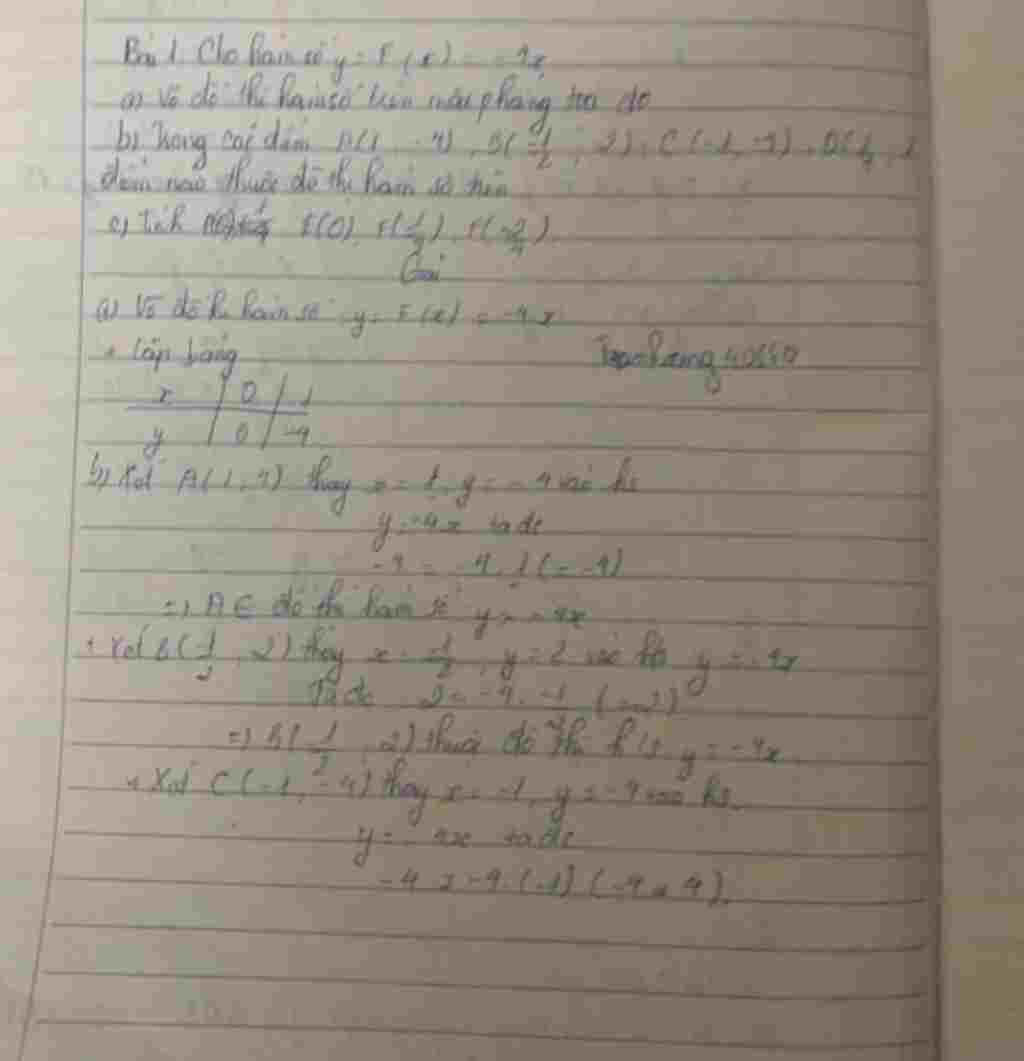 Bài 1 Cho hàm số y = F(x) = -4x
a) Vẽ đồ thị hàm số trên mặt phẳng toạ độ
b) Trong các điểm A(1, -4), B(-1/2, 2), C(-1, -4), D(
điểm nào thuộc đồ thị hàm số trên
c) Tính F(0)
Giải
a) Vẽ đồ thị hàm số y = F(x) = -4x
+ Lập bảng
x | 0 | 1
y | 0 | -4
b) Xét A(1, 4) thay x = 1, y = -4 vào hs
y = -4x ta đc
-4 = -4.1 (= -4)
=> A ∈ đồ thị hàm số y = -4x
+ Xét B(-1/2, 2) thay x = -1/2, y = 2 vào hs y = -4x
Ta đc 2 = -4. -1/2 (= 2)
=> B(-1/2, 2) thuộc đồ thị h/s y = -4x
+ Xét C(-1, -4) thay x = -1, y = -4 vào hs
y = -4x ta đc
-4 = -4.(-1) (-4 ≠ 4).